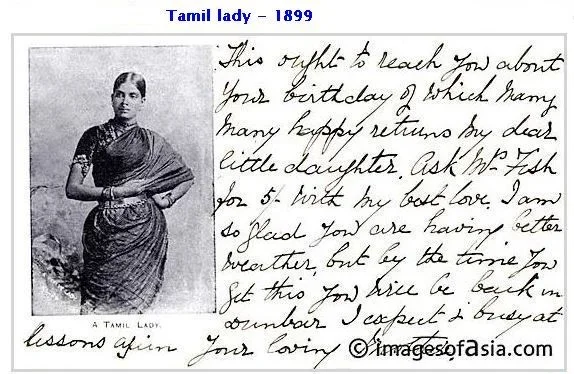 Tamil lady – 1899
This ought to reach you about
your birthday of which many
many happy returns my dear
little daughter. Ask Mr. Fish
for 5/- with my best love. I am
so glad you are having better
weather, but by the time you
get this you will be back in
Dunbar I expect & busy at
A TAMIL LADY.
lessons again Your loving
© imagesofasia.com